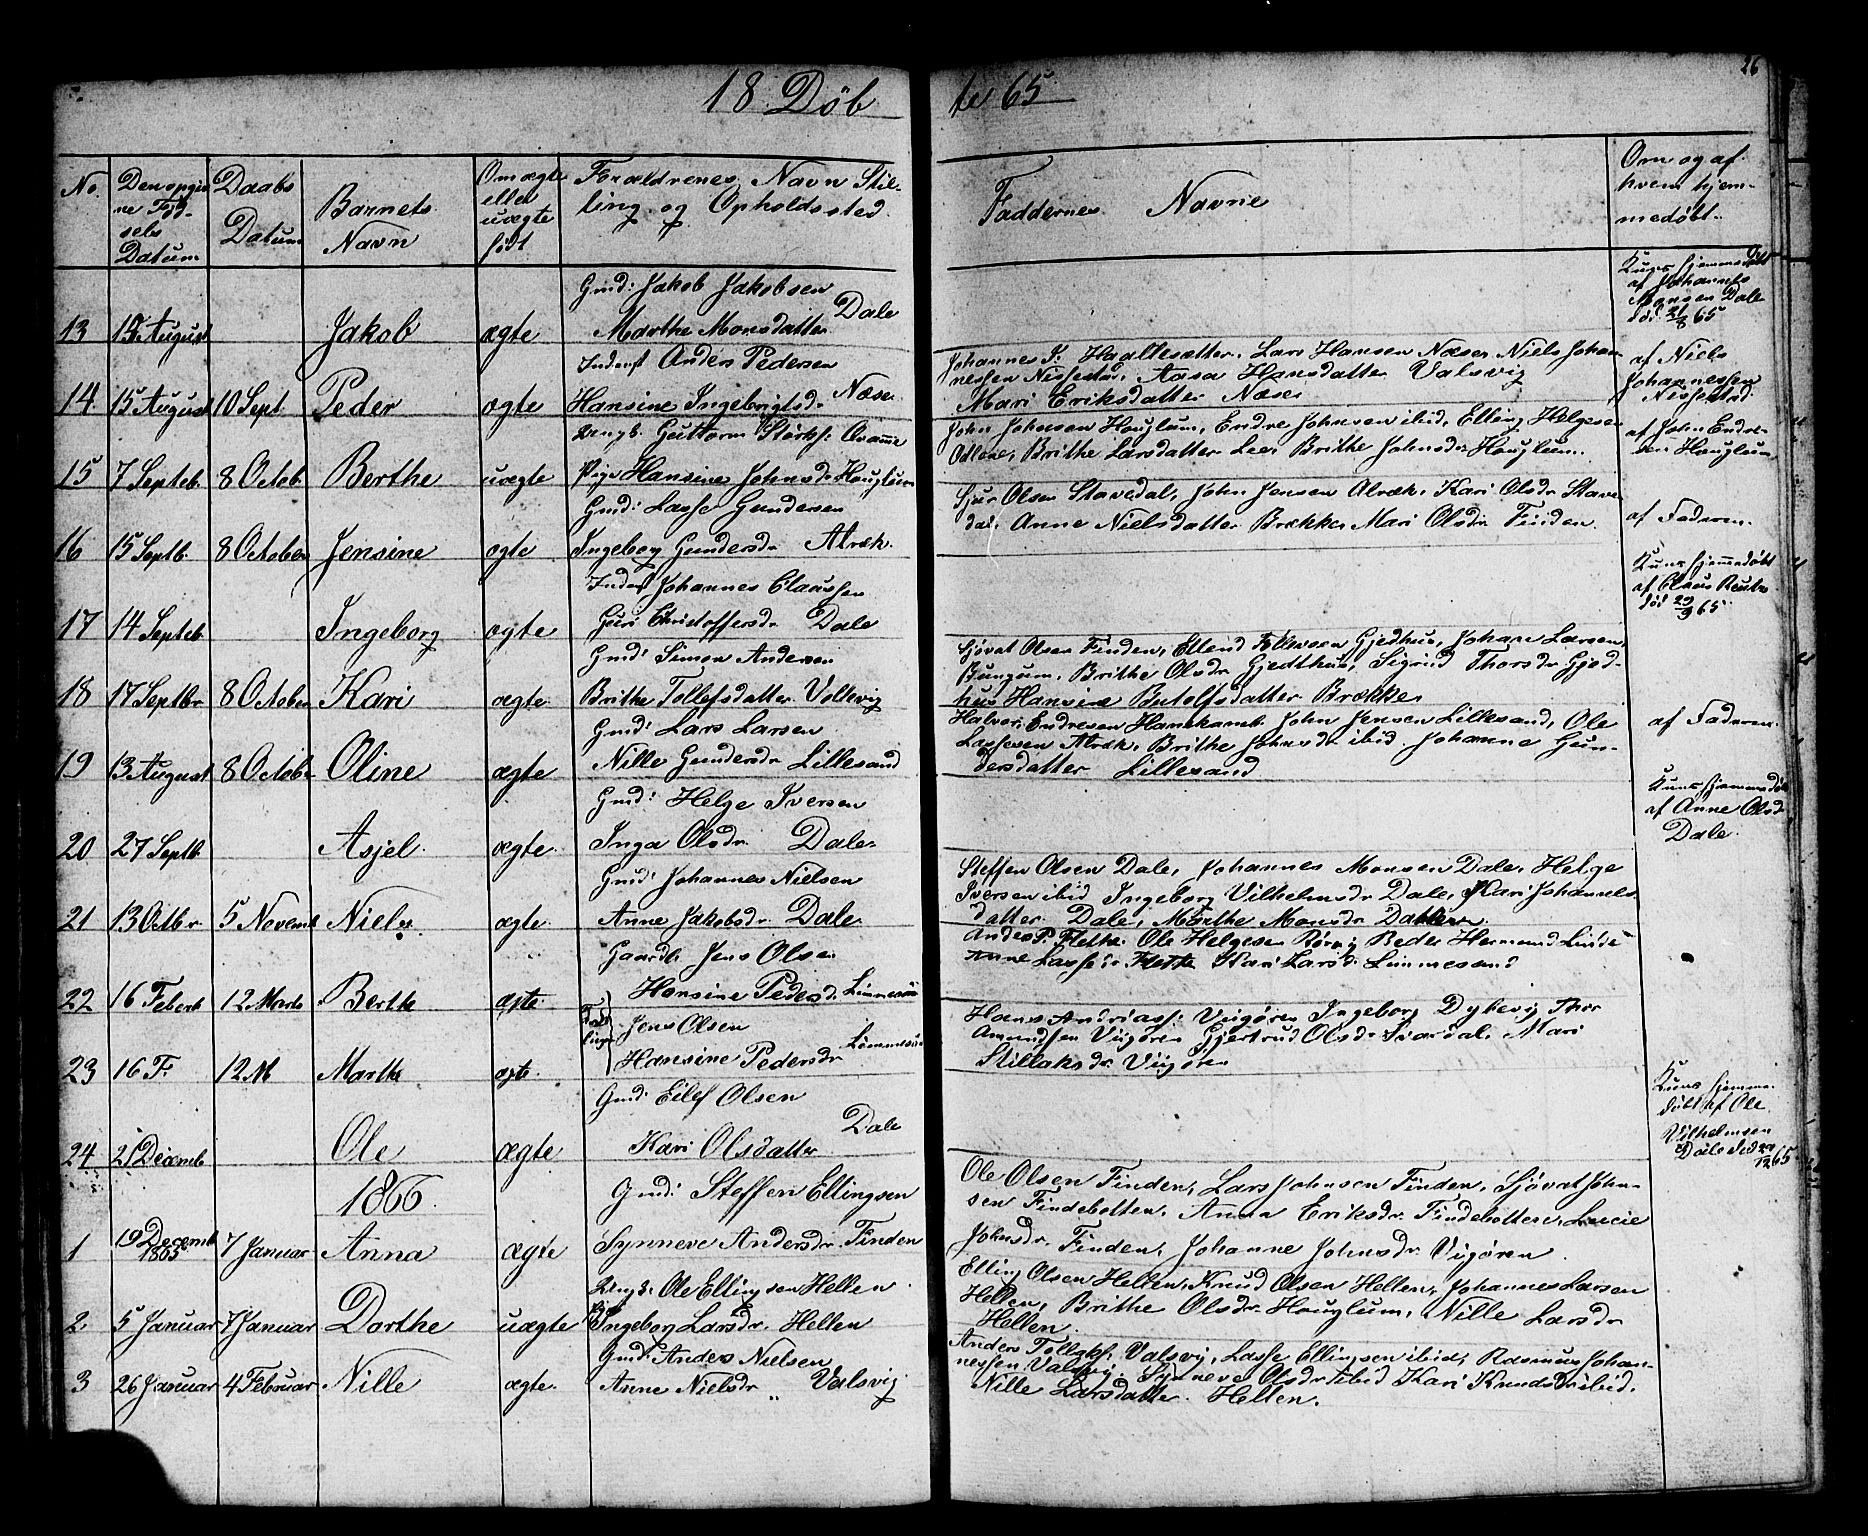 18 Døbte 65
26
No.
Den opgivne Fødsels Datum
Daabs Datum
Barnets Navn
Om ægte eller uægte født
Forældrenes Navn Stilling og Opholdssted.
Faddernes Navne
Om og af hvem hjemmedøbt.
13 15 August Jakob ægte
Gmd: Jakob Jakobsen
Marthe Monsdatter Dale
Kuns hjemmedøbt
af Johannes
Monsen Dale
død 21/8 65
14 15 August 10 Sept Peder ægte
Inderst Anders Pedersen
Hansine Ingebrigtsd. Næse
Johannes J. Lars Hansen Næse. Niels Johan-
nessen Nissestad. Aasa Hansdatter Valsvig
Mari Eriksdatter Næse
af Niels
Johannessen
Nissestad.
15 7 Septeb. 8 Octob. Berthe uægte
Ungk. Guttorm Størks: Ovamme
Pige Hansine Johnsd. Houglum
John Johnsen Houglum, Endre Johnsen ibid, Elling Helgesen
Brithe Larsdatter Lee, Brithe Johnsdr Houglum.
af John Endre-
sen Houglum
16 15 Septb. 8 October Jensine ægte
Gmd: Lasse Gundersen
Ingeborg Gundersdr Alræk.
Sjur Olsen Stavedal, John Jensen Alræk, Kari Olsdr Stave-
dal, Anne Nielsdatter Brække Mari Olsdr Finden.
af Faderen.
17 14 Septeb. Ingeborg ægte
Inderst Johannes Claussen
Guri Christoffersdr Dale
Kuns hjemmedøbt
af Claus
død 29/9 65.
18 17 Septbr 8 October Kari ægte
Gmd: Simon Andersen
Brithe Tollefsdatter Valsvig
Sjøvat Olsen Finden, Ellend Gjedhus, Johan Larsen
Bungum. Brithe Olsdr Gjedthus, Sigrid Thorsdr Gjed-
hus Hansine Botolfsdatter Brække
19 13 August 8 Octobr Oline ægte
Gmd: Lars Larsen
Nille Gundersdr Lillesand
Halvor Endresen Hamhamb John Jensen Lillesand, Ole
Lassesen Alræk, Brithe Johnsdr ibid Johanne Gun-
dersdatter Lillesand
af Faderen.
20 27 Septb. Asjel. ægte
Gmd: Helge Iversen
Inga Olsdr. Dale
Kuns hjemmedøbt
af Anne Olsdr
Dale.
21 13 Octbr 5 Novemb Niels ægte
Gmd: Johannes Nielsen
Anne Jakobsdr. Dale
Steffen Olsen Dale, Johannes Monsen Dale, Helge
Iversen ibid Ingeborg Vilhelmsdr Dale, Kari Johannes-
datter Dale, Marthe Monsdr
22 16 Februb 12 Marts Berthe ægte
Gaardb. Jens Olsen
Hansine Pedersd.
Anders P. Flethe Ole Helgesen Peder Hermund Linde
Anne Lasse dr Flethe Kari Larsd.
23 16 F. 12 M Marthe ægt.
Jens Olsen
Hansine Pedersdr
Hans Andrias: Viigøren Ingeborg Dybevig Thor
Amundsen Viigøren Gjertrud Olsdr Mari
Stillaksdr Viigøren
24 21 Decemb Ole ægte
Gmd: Eilef Olsen
Kari Olsdatter Dale
Kuns hjemme-
døbt af Ole
Vilhelmsen
Dale
1866.
1 19 Decemb 1865 7 Januar Anna ægte
Gmd: Steffen Ellingsen
Synneve Andersdr. Finden
Ole Olsen Finden, Lars Johnsen Finden, Sjøvat John-
sen Findebotten. Anna Eriksdr. Findebotten, Lucie
Johnsdr. Finden, Johanne Johnsdr Vigøren.
2 5 Januar 7 Januar Dorthe uægte
Ungk: Ole Ellingsen Hellen
Ingeborg Larsdr. Hellen
Elling Olsen Hellen, Knud Olsen Hellen, Johannes Larsen
Hellen, Brithe Olsdr. Houglum, Nille Larsdr
Hellen.
3 26 Januar 4 Februar Nille ægte
Gmd: Anders Nielsen
Anne Nielsdr " Valsvig
Anders Tollaks: Valsvig, Lasse Ellingsen ibid, Rasmus Johan-
nessen Valsvig. Synneve Olsdr ibid Kari Knudsdr ibid.
Nille Larsdatter Hellen.